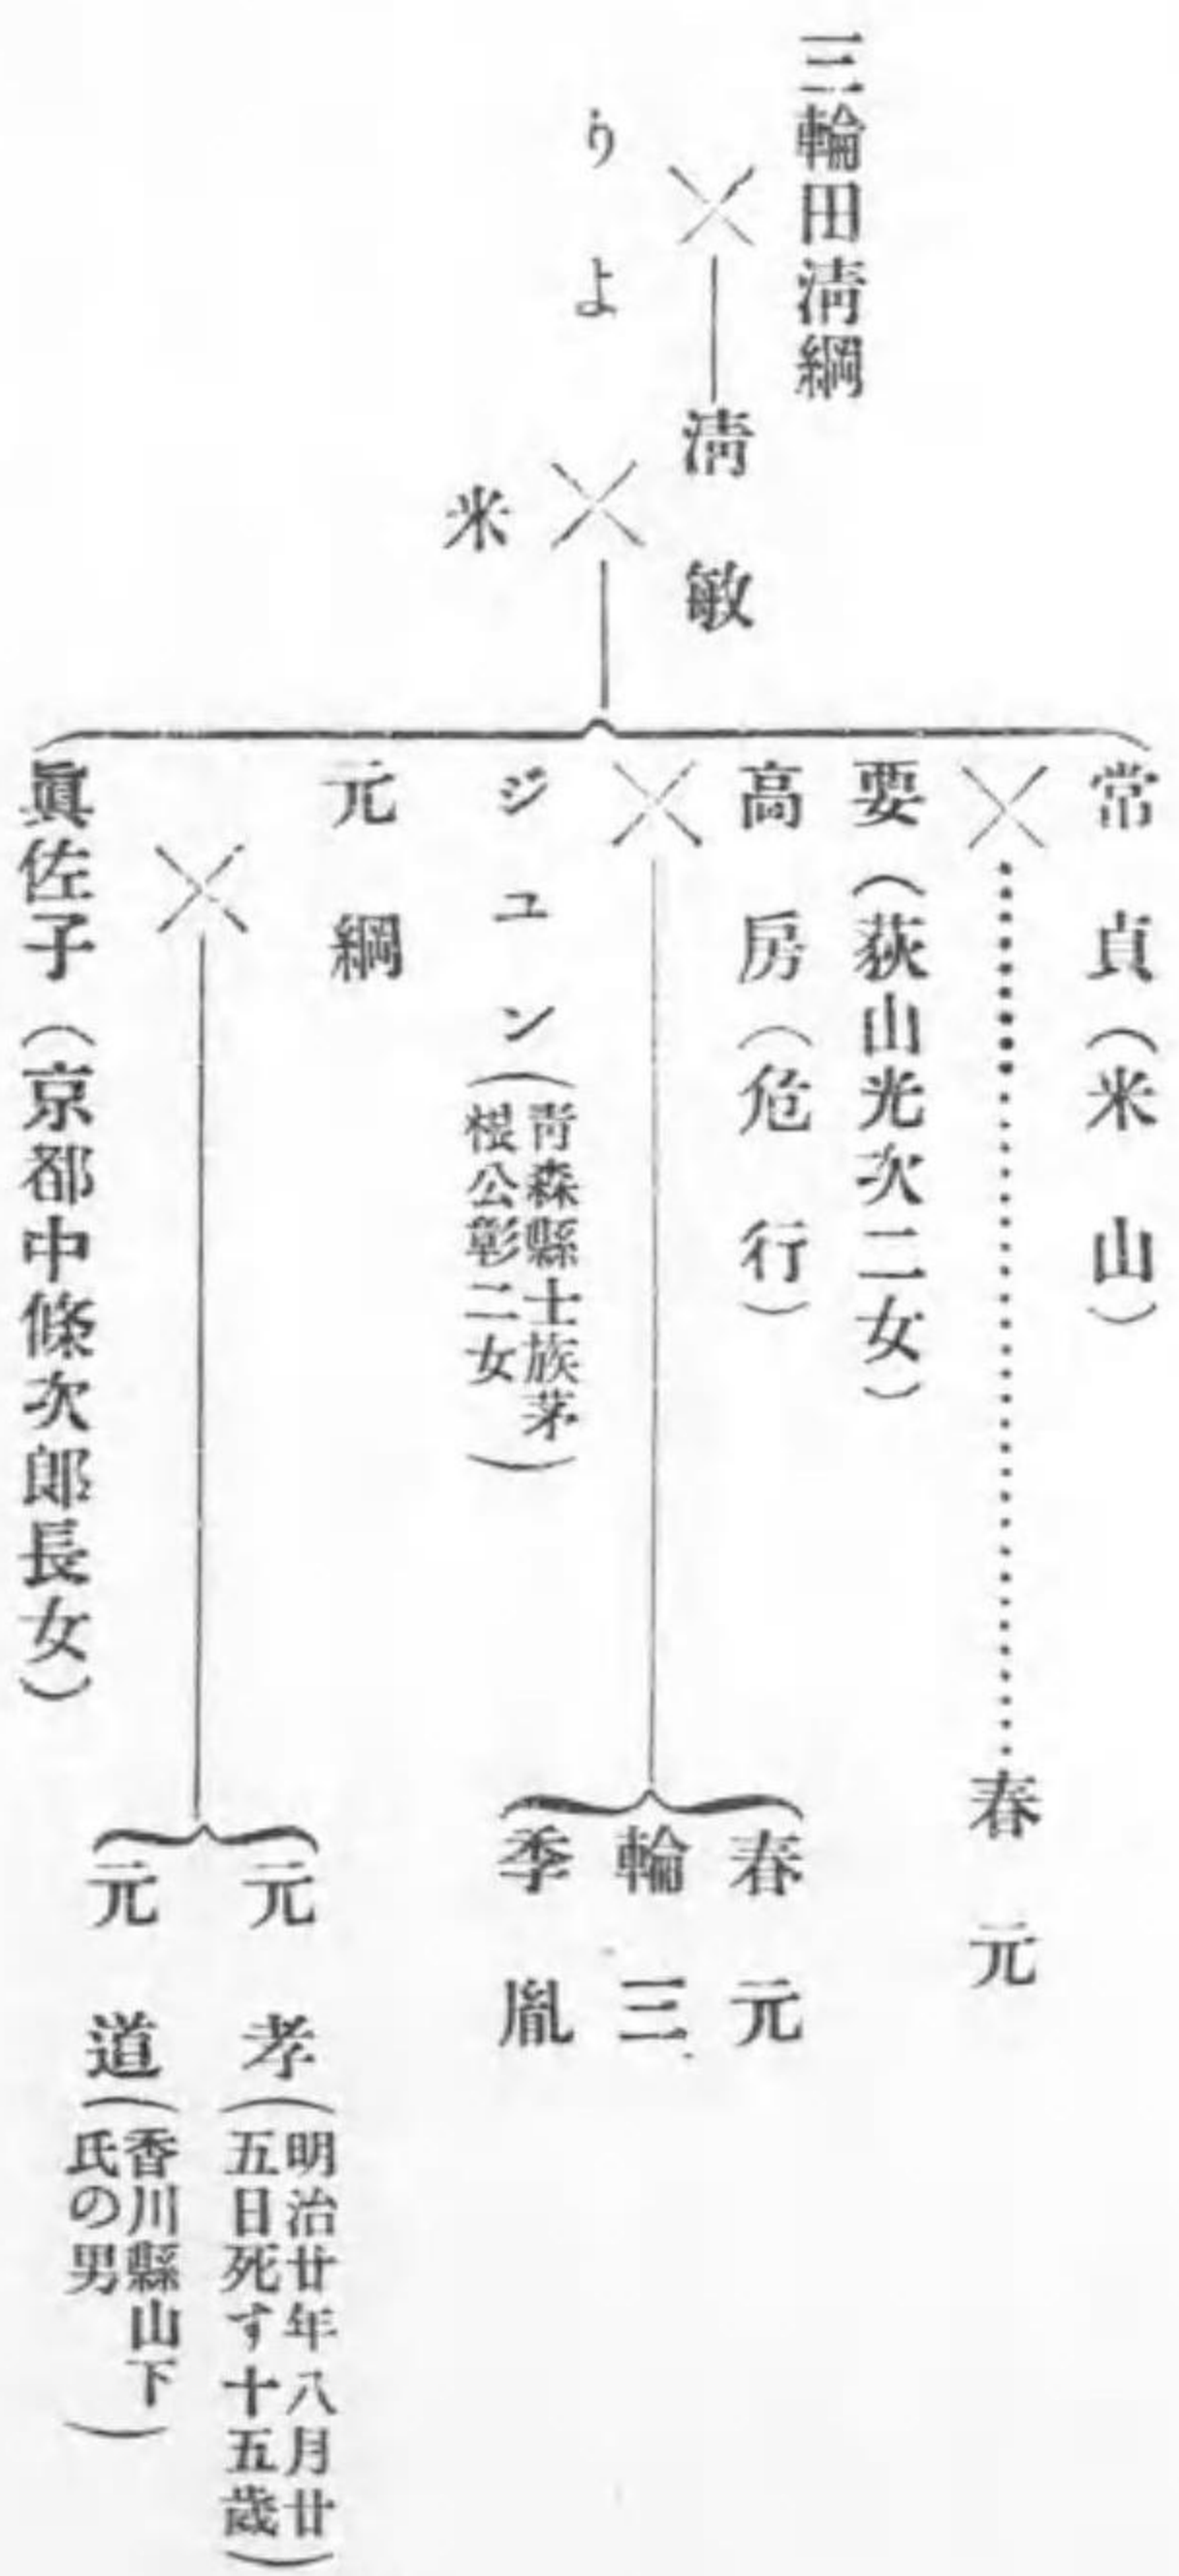 三輪田淸綱
りよ
淸敏
米
常貞(米山)
要(荻山光次二女)
春元
高房(危行)
ジュン(靑森縣士族茅
根公彰二女)
春元
輪三
季胤
元綱
眞佐子(京都中條次郎長女)
元孝(明治廿年八月廿
五日死す十五歲)
元道(香川縣山下
氏の男)